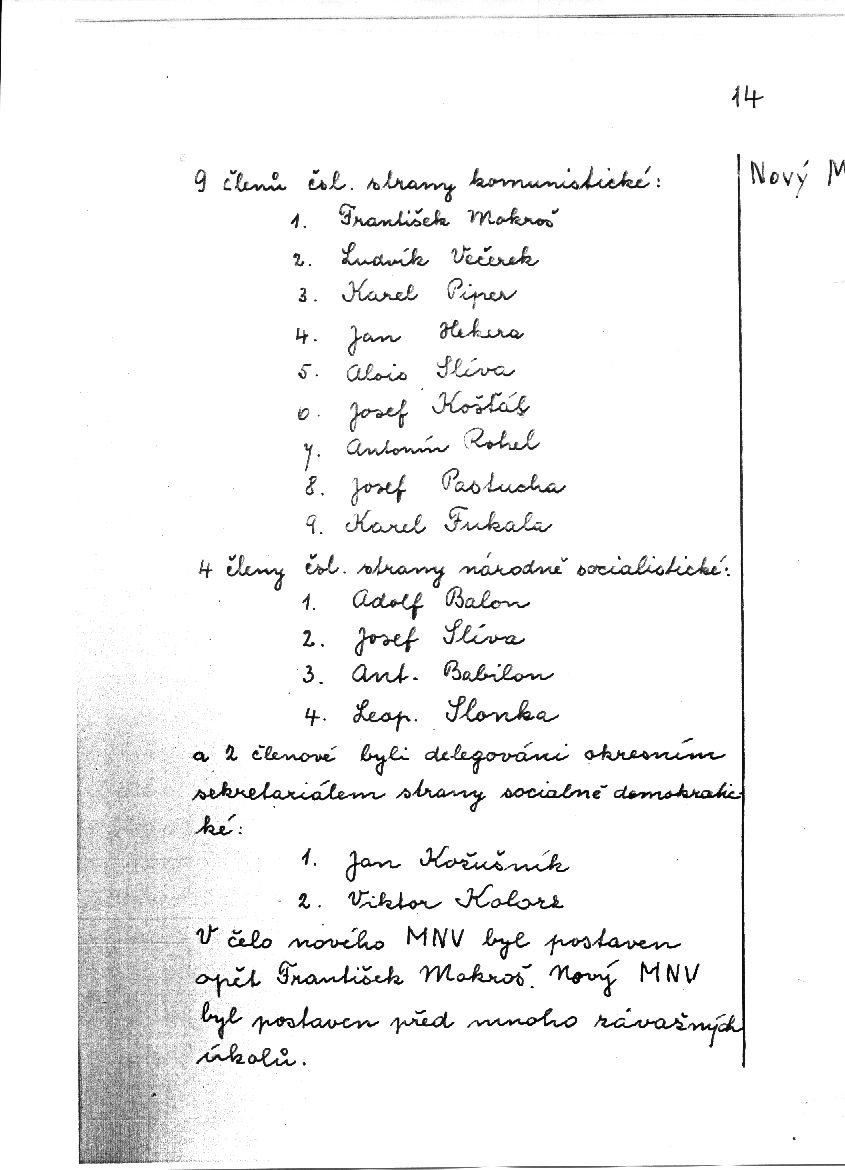 14
Nový M
9 členů čsl. strany komunistické:
1. František Mokroš
2. Ludvík Večerek
3. Karel Piper
4. Jan Hekera
5. Alois Slíva
6. Josef Košťál
7. Antonín Rohel
8. Josef Pastucha
9. Karel Fukala
4 členy čsl. strany národně socialistické:
1. Adolf Balon
2. Josef Slíva
3. Ant. Babilon
4. Leop. Slonka
a 2 členové byli delegováni okresním
sekretariátem strany socialně demokratic
ké:
1. Jan Kožušník
2. Viktor Kolorz
V čelo nového MNV byl postaven
opět František Mokroš. Nový MNV
byl postaven před mnoho závažných
úkolů.